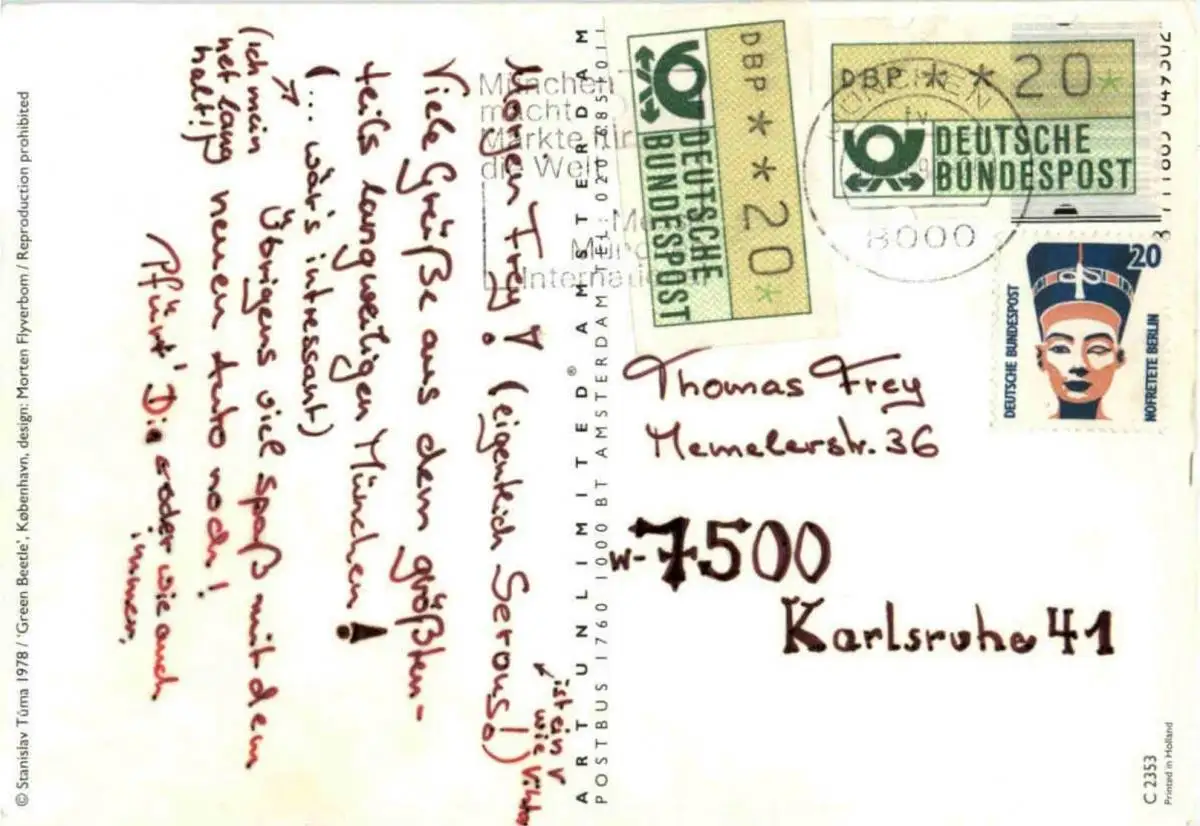 Morgen Frey! (eigentlich Servus!)
ist ein v
wie Viktor
Viele Grüße aus dem größten-
teils langweiligen München!
(... wär's intressant)
Übrigens viel spaß mit dem
neuen Auto noch!
(ich mein
net lang
halt!)
Pfürt' Die oder wie auch
immer,
© Stanislav Tůma 1978 / 'Green Beetle', København, design: Morten Flyverbom / Reproduction prohibited
ART UNLIMITED® AMSTERDAM
POSTBUS 1760 1000 BT AMSTERDAM TEL
München
macht
Märkte für
die Welt
DBP **20*
DEUTSCHE
BUNDESPOST
DBP **20*
DEUTSCHE
BUNDESPOST
MÜNCHEN
8000
20
DEUTSCHE BUNDESPOST
NOFRETETE BERLIN
Thomas Frey
Memelerstr. 36
W-7500
Karlsruhe 41
C 2353
Printed in Holland